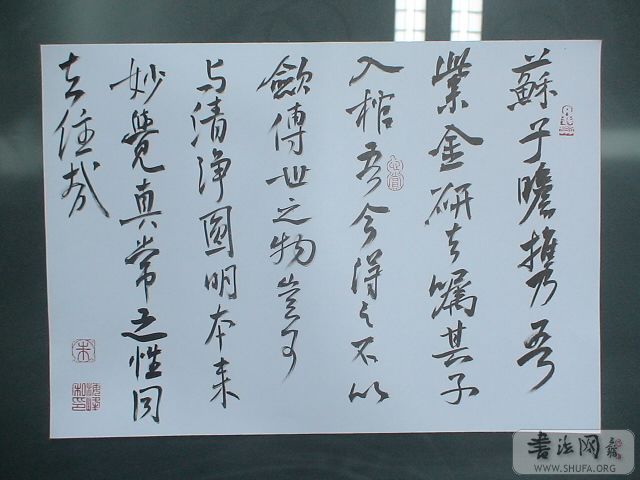 蘇子瞻携吾
紫金研去嘱其子
入棺吾今得之不以
歛傳世之物豈可
与清浄圓明本来
妙覺真常之性同
去住哉
朱
書法网
WWW.SHUFA.ORG